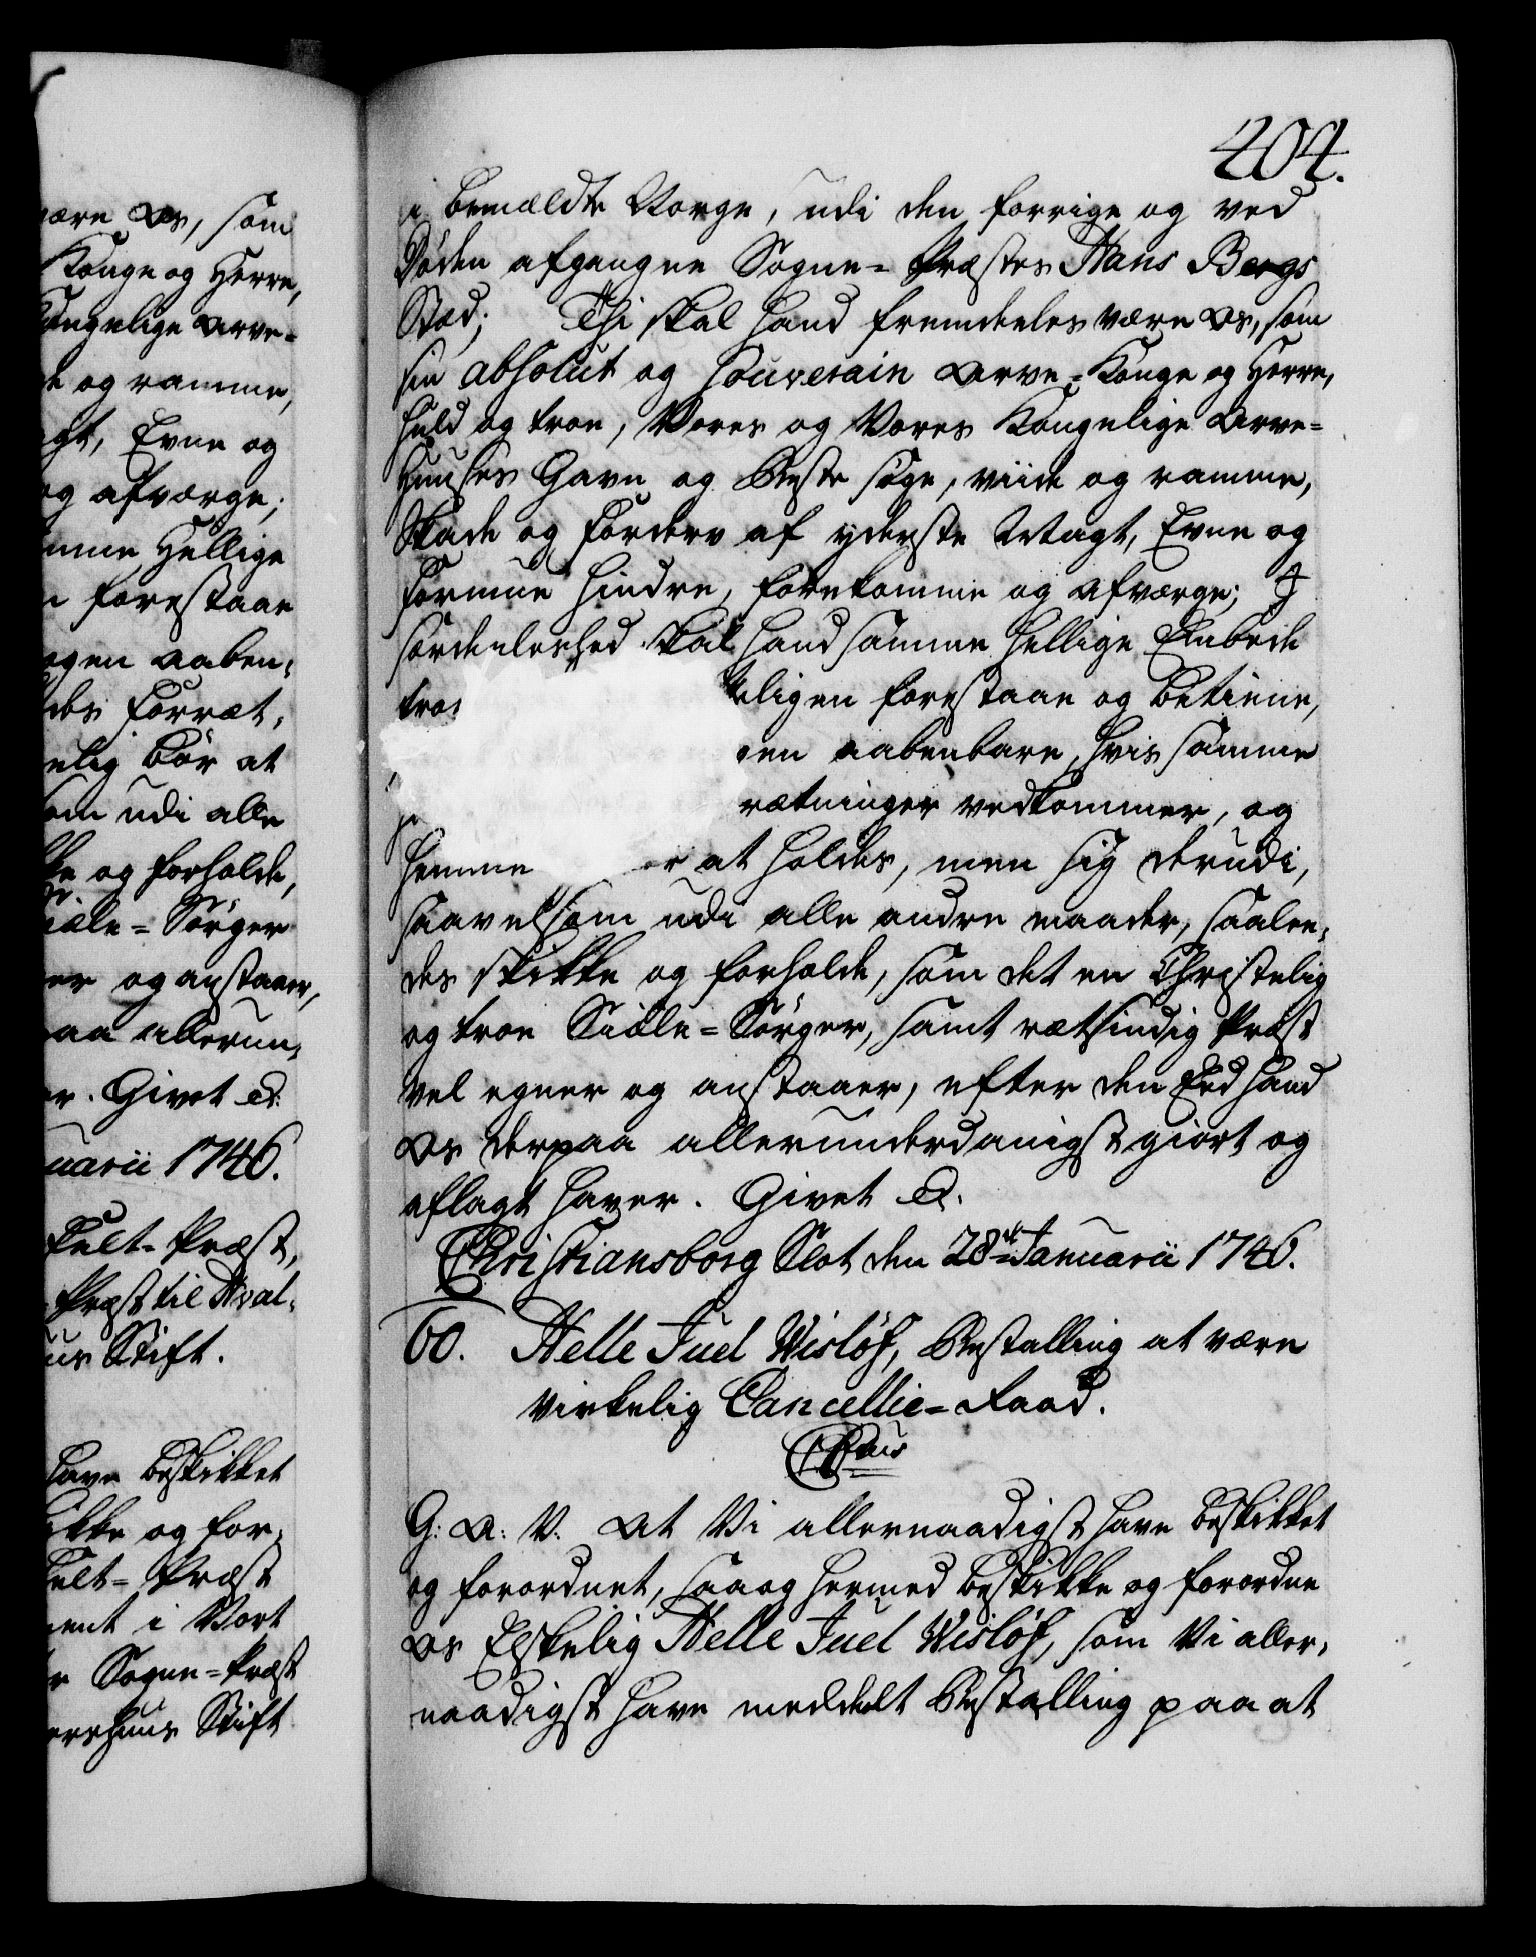 ære os, som
Konge og Herre,
Kongelige Arve-
de og ramme,
agt, Evne og
og afværge;
amme Hellige
n forestaae
ogen aaben-
des Forræt-
nelig bør at
som udi alle
kke og forholde,
Siæle-Sørger
er og anstaaer,
paa allerun-
er. Givet &.
uarii 1746.
Felt-Præst,
Præst til Hval-
uus Stift.
have beskikket
ikke og for-
Felt-Præst
ment i Vort
r Sogne-Præst
ershuus Stift
404.
i bemældte Norge, udi den forrige og ved
Døden afgangne Sogne-Præstes Hans Bergs
Stæd; Thi skal hand fremdeeles være os, som
sin absolut og souverain Arve-Konge og Herre,
huld og troe, Vores og Vores Kongelige Arve-
Huuses Gavn og Beste søge, viide og ramme,
Skade og Forderv af yderste Magt, Evne og
Formue hindre, forekomme og afværge; J
særdeeleshed skal hand samme hellige Embede
troe ligen forestaae og betiene,
gen aabenbare, hvis samme
rætninger vedkommer, og
hemme at holdes, men sig derudi,
saavelsom udi alle andre maader, saalee-
des skikke og forholde, som det en Christelig
og troe Siæle-Sørger, samt rætsindig Præst
vel egner og anstaaer, efter den Eed hand
os derpaa allerunderdanigst giort og
aflagt haver. Givet &.
Christiansborg Slot den 28de Januarii 1746.
60. Helle Juel Wisløf, Bestalling at være
virkelig Cancellie-Raad.
G: A: V. At Vi allernaadigst have beskikket
og forordnet, saa og hermed beskikke og forordne
os Elskelig Helle Juel Wisløf, som Vi aller-
naadigst have meddeelt Bestalling paa at